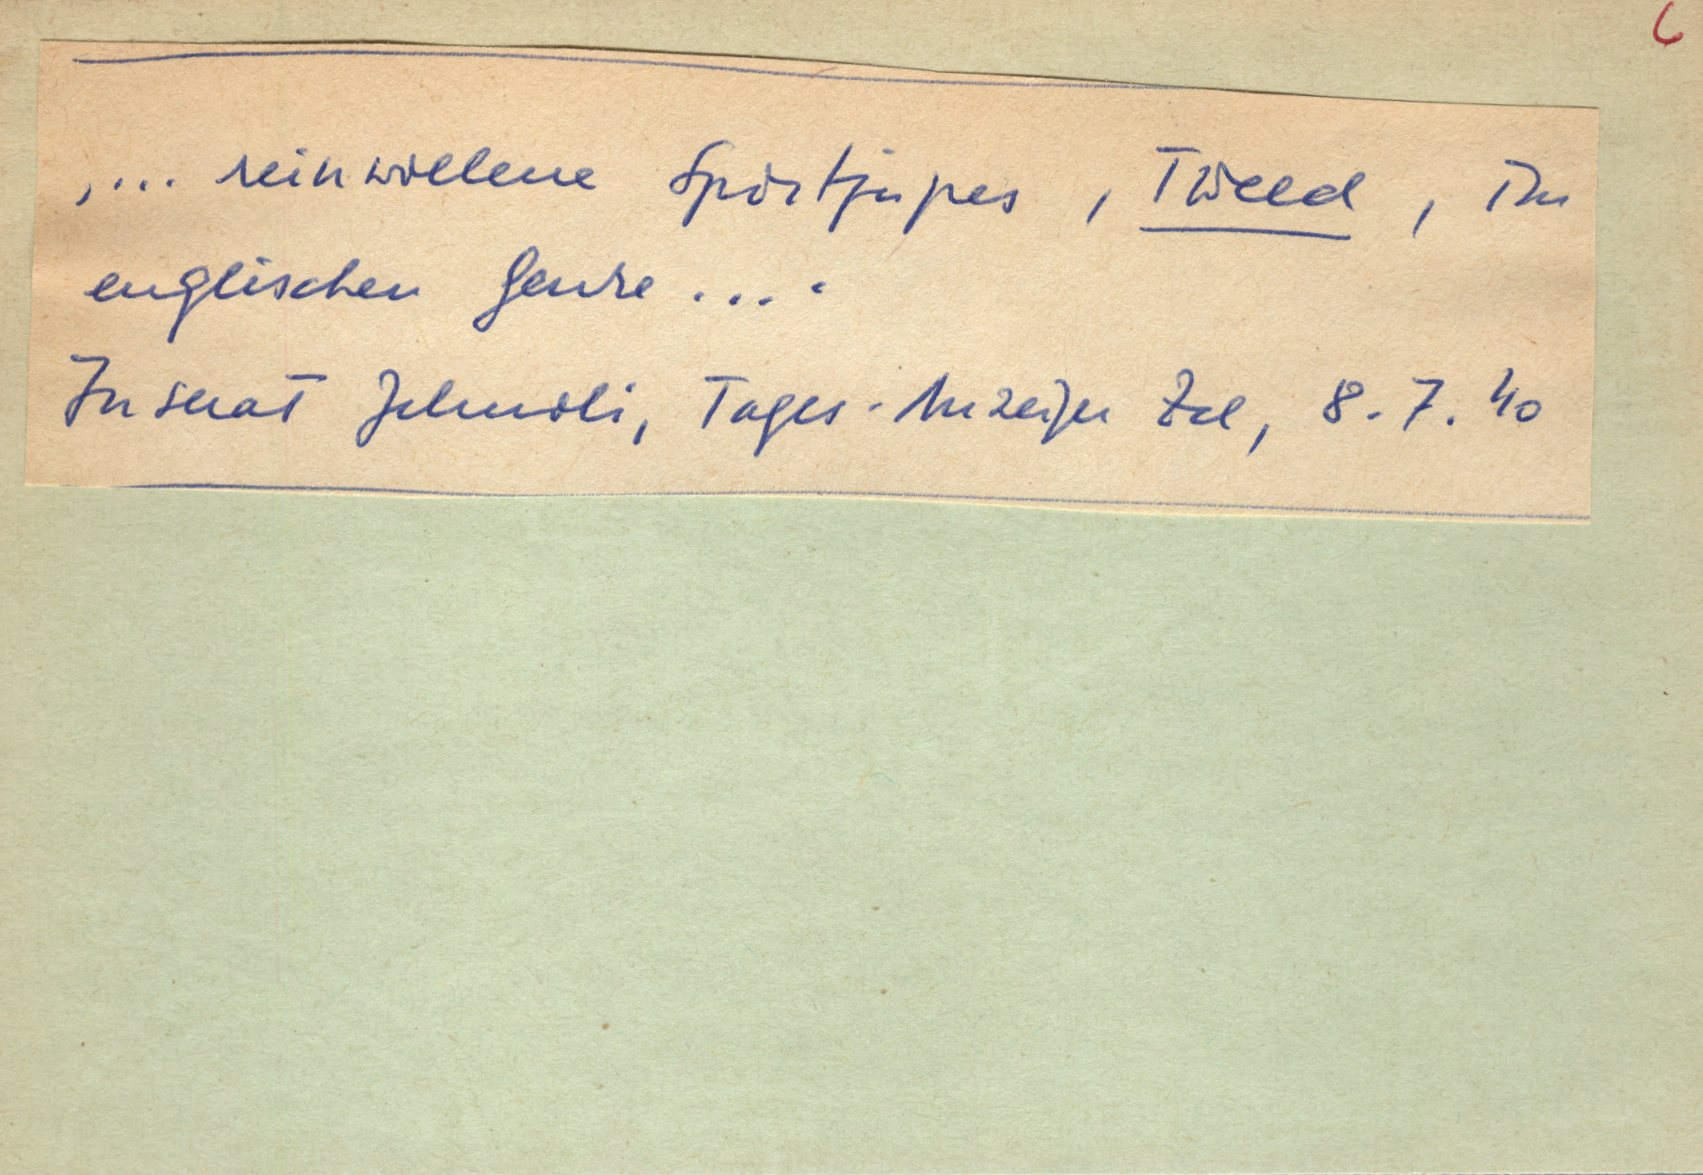 6
‚... reinwollene Sportjupes, Tweed, im
englischen Genre ...‘
Inserat Jelmoli, Tages-Anzeiger Zch, 8.7.40